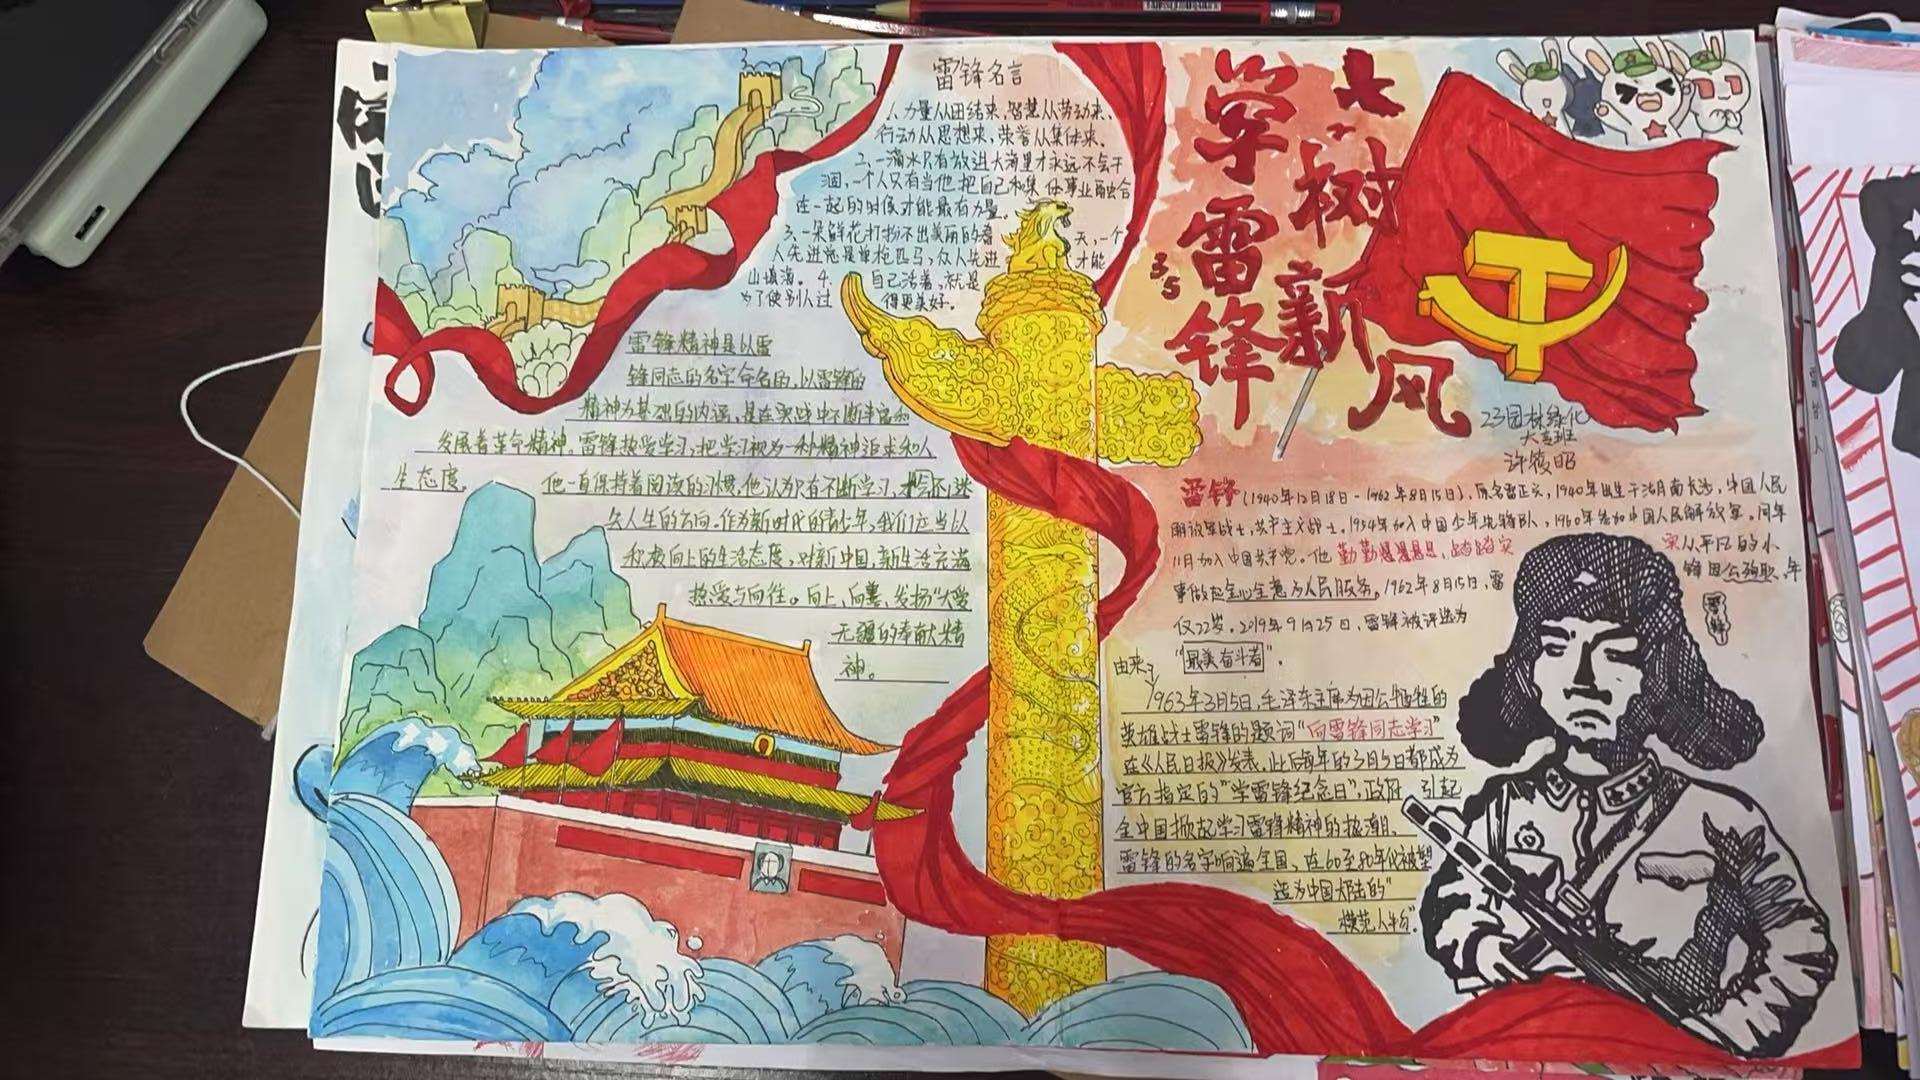 雷锋名言
1、力量从团结来,智慧从劳动来、
行动从思想来,荣誉从集体来、
2、一滴水只有放进大海里才永远不会干
涸,一个人只有当他把自己和集体事业融合
在一起的时候才能最有力量。
3、一朵鲜花打扮不出美丽的春天,一个
人先进总是单枪匹马,众人先进才能
山填海。4、自己活着,就是
为了使别人过得更美好。
雷锋精神是以雷
锋同志的名字命名的,以雷锋的
精神为基础的内涵,是在实践中不断丰富和
发展着革命精神。雷锋热爱学习,把学习视为一种精神追求和人
生态度。他一直保持着阅读的习惯,他认为只有不断学习,才会不迷
失人生的方向。作为新时代的青少年,我们应当以
积极向上的生活态度,对新中国,新生活充满
热爱与向往。向上,向善,发扬“大爱
无疆的奉献精
神。
学雷锋
树新风
3.5
23园林绿化
大专班
许筱昭
雷锋(1940年12月18日-1962年8月15日),原名雷正兴,1940年出生于湖南长沙,中国人民
解放军战士,共产主义战士。1954年加入中国少年先锋队,1960年参加中国人民解放军,同年
11月加入中国共产党。他勤勤恳恳,踏踏实实从平凡的小
事做起全心全意为人民服务。1962年8月15日,雷锋因公殉职,年
仅22岁。2019年9月25日,雷锋被评选为
“最美奋斗者”。
雷锋
由来:
1963年3月5日,毛泽东主席为因公牺牲的
英雄战士雷锋的题词“向雷锋同志学习”
在《人民日报》发表,此后每年的3月5日都成为
官方指定的“学雷锋纪念日”,政府 引起
全中国掀起学习雷锋精神的热潮、
雷锋的名字响遍全国、在60至80年代被塑
造为中国大陆的“
模范人物”。